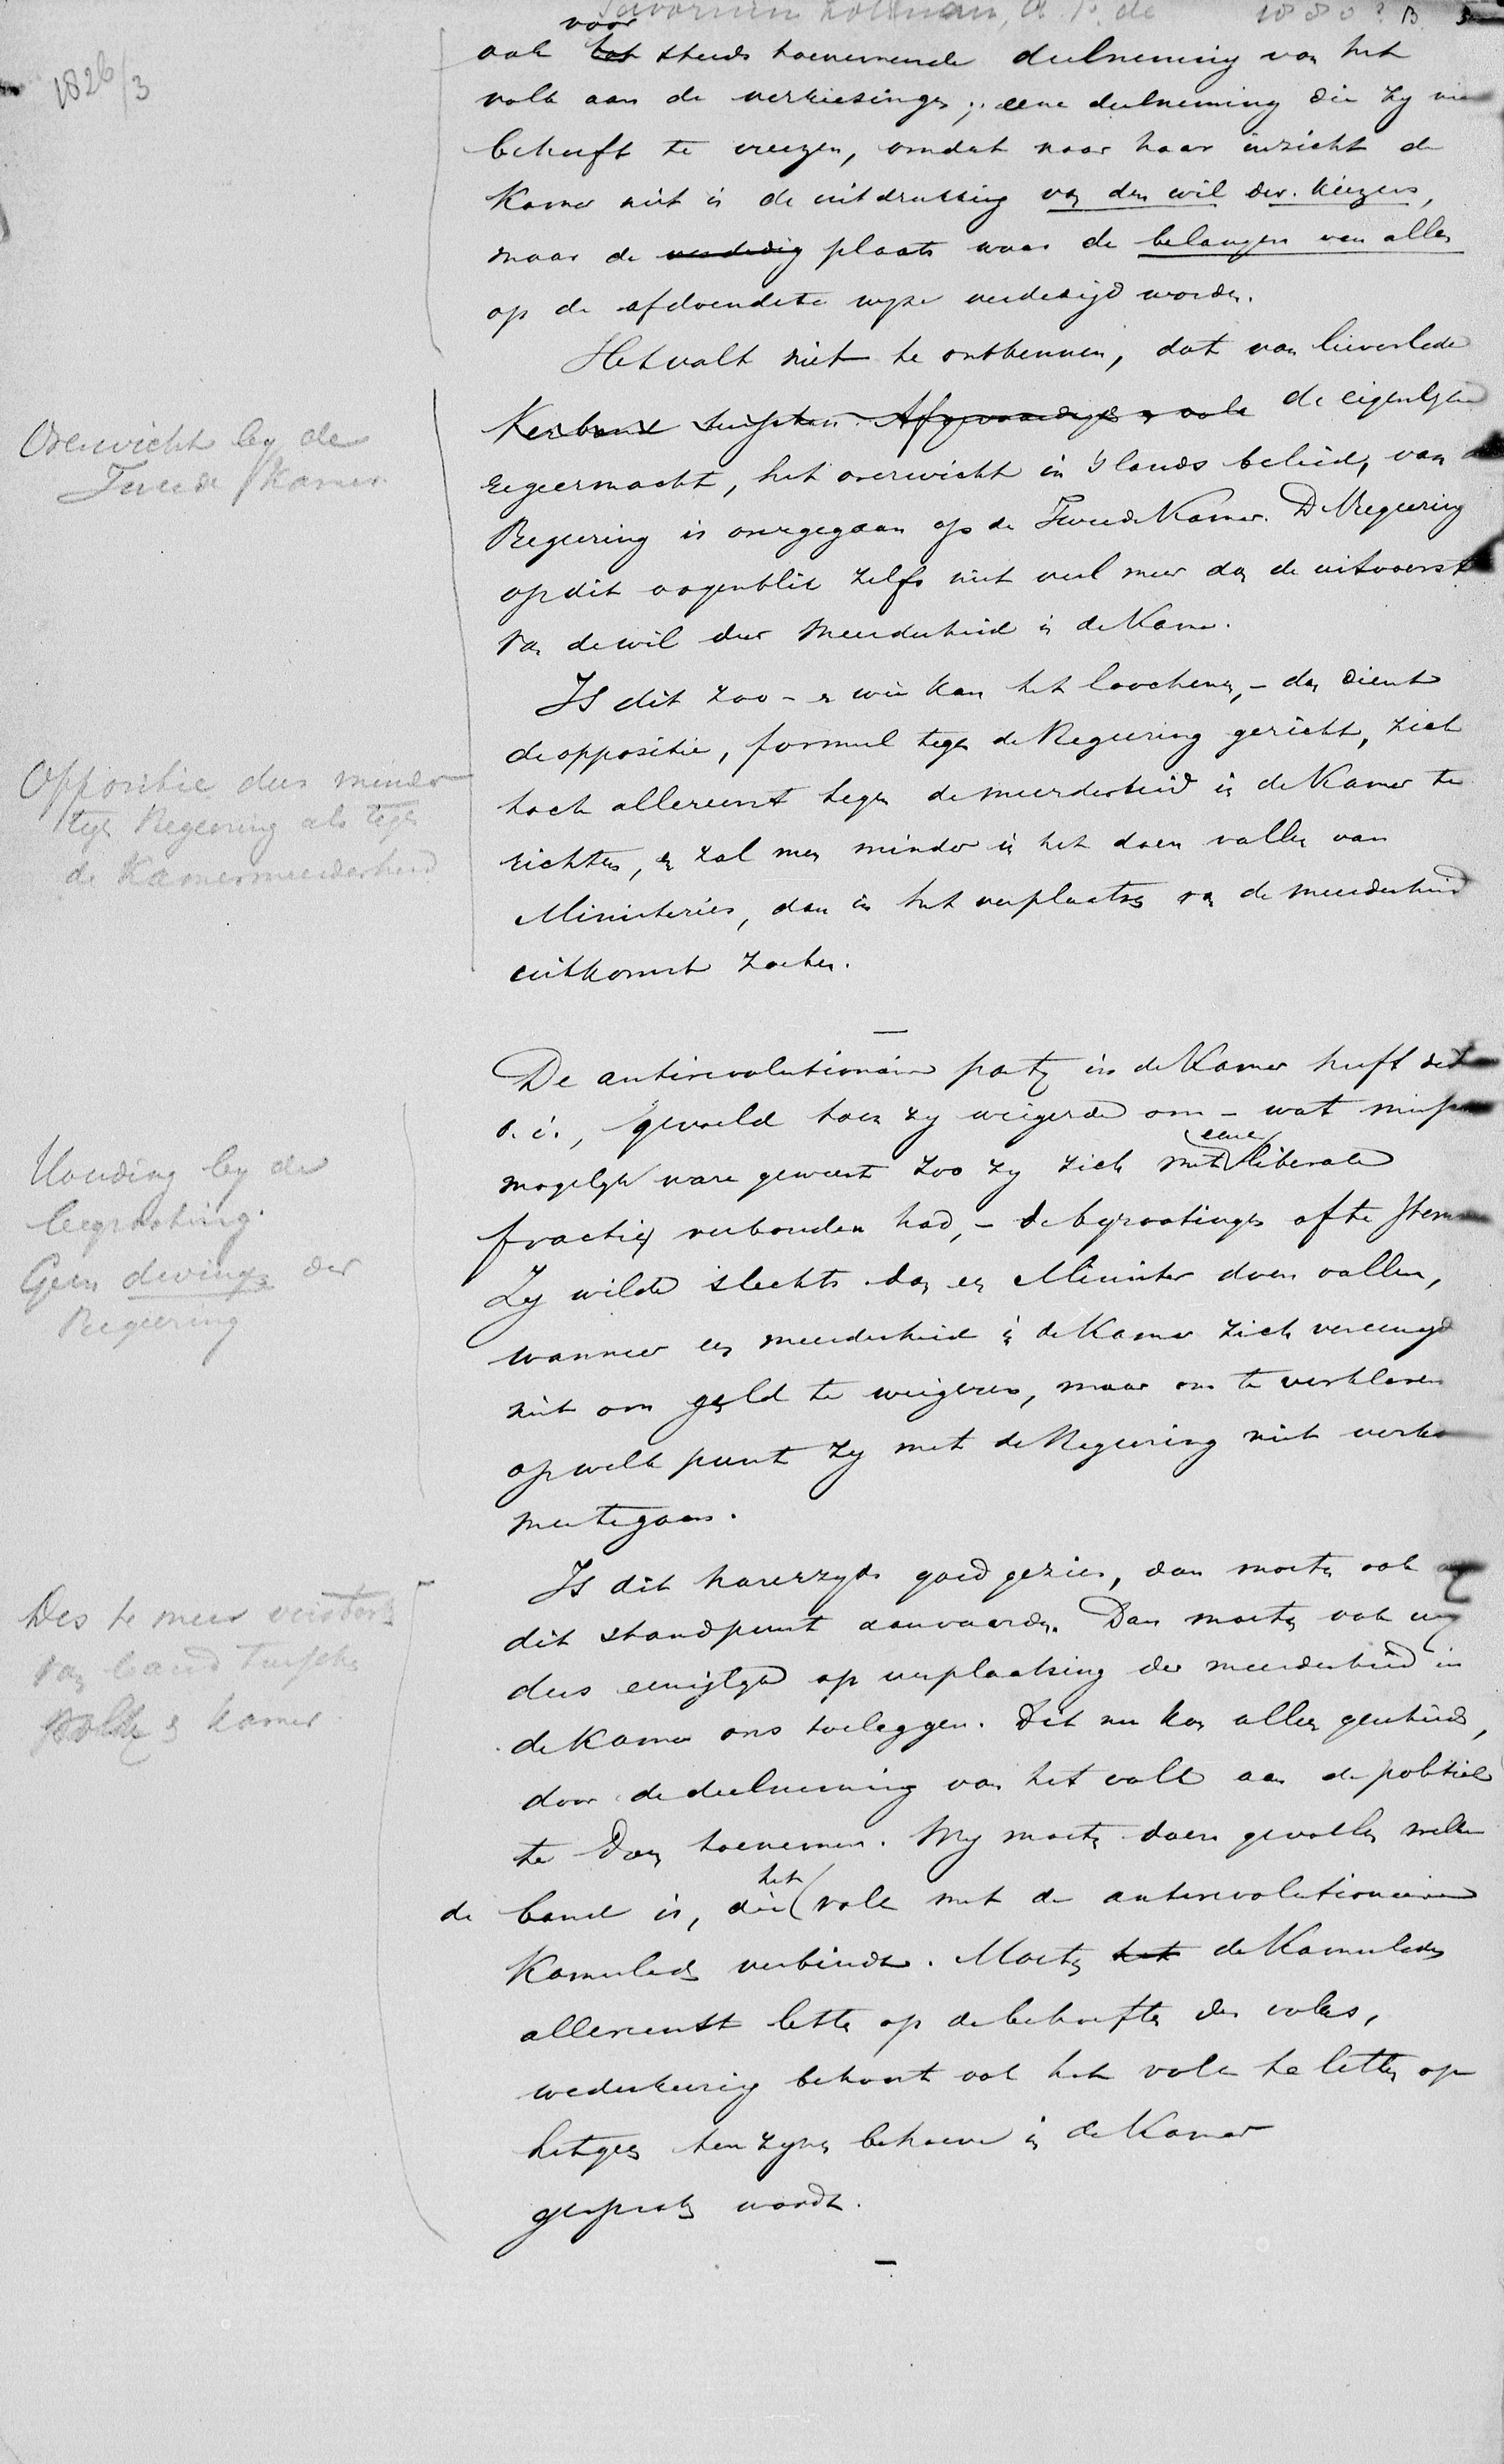 Savornin Lohman, A. F. de 1880? B
1826/3
voor
ook tot steeds toenemende deelneming van het
volk aan de verkiezingen; eene deelneming die zy nie
behoeft te vreezen, omdat naar haar inzicht de
Kamer niet is de uitdrukking van den wil der kiezers,
maar de verdedig plaats waar de belangen van allen
op de afdoendste wyze verdedigd worden.
Het valt niet te ontkennen, dat van lieverlede
Overwicht by de
Tweede Kamer
Verband tusschen Afgevaardigde en volk de eigenlyke
regeermacht, het overwicht in 's lands beleid, van de
Regeering is overgegaan op de Tweede Kamer. De Regeering
op dit oogenblik zelfs niet veel meer dan de uitvoerst
van de wil der meerderheid in de Kamer.
Is dit zoo – en wie kan het loochenen, – dan dient
de oppositie, formeel tegen de Regeering gericht, zich
Oppositie dus minder
tegen Regeering als tegen
de Kamermeerderheid
toch allereerst tegen de meerderheid in de Kamer te
richten, en zal men minder in het doen vallen van
Ministeries, dan in het verplaatsen van de meerderheid
uitkomst zoeken.
—
De antirevolutionaire party in de Kamer heeft dit
o. i., gevoeld toen zy weigerde om – wat miss
eene
mogelyk ware geweest zoo zy zich met liberale
Houding by de
begrooting.
Geen dwingen der
Regeering
fractie verbonden had, – de begrootingen af te stem
Zy wilde slechts dan een Minister doen vallen,
wanneer een meerderheid in de Kamer zich vereenigd
niet om geld te weigeren, maar om te verklaren
op welk punt zy met de Regeering niet verk
meetegaan.
Is dit harerzyds goed gezien, dan moeten ook
Des te meer versterk
van band tusschen
volk en Kamer
dit standpunt aanvaarden. Dan moeten ook wy
dus eeniglyk op verplaatsing der meerderheid in
de Kamer ons toeleggen. Dit nu kan alleen geschieden,
door de deelneming van het volk aan de politiek
te doen toenemen. Wy moeten doen gevoelen welke
het
de band is, die volk met de antirevolutionaire
Kamerleden verbindt. Moeten het de Kamerleden
allereerst letten op de behoeften des volks,
wederkeerig behoort ook het volk te letten op
hetgeen ten zynen behoeve in de Kamer
gesproken wordt.
—